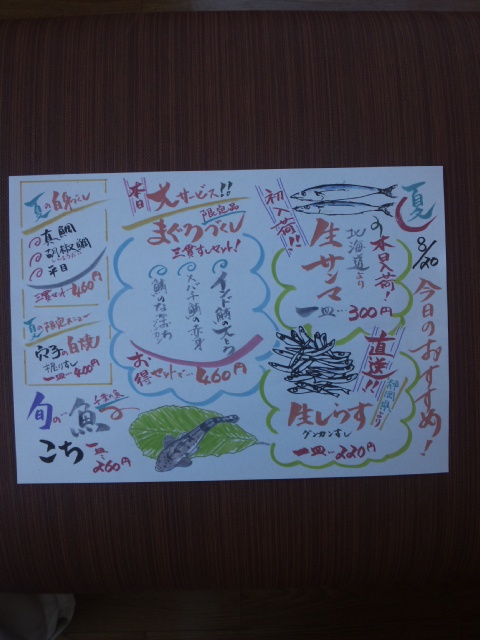 夏
8/20
今日のおすすめ!
初入荷!!
本日入荷!
北海道より
生サンマ
一皿…300円
直送!!
静岡県より
生しらす
グンカンすし
一皿…220円
本日
大サービス!!
限定品
まぐろづくし
三貫すしセット!
インド鮪の大とろ
メバチ鮪の赤身
お得セットで…460円
夏の白身づくし
真鯛
胡椒鯛
平目
三貫セット…460円
夏の限定メニュー
穴子の白焼
握りすし
一皿…400円
旬の…魚
こち
一皿…260円